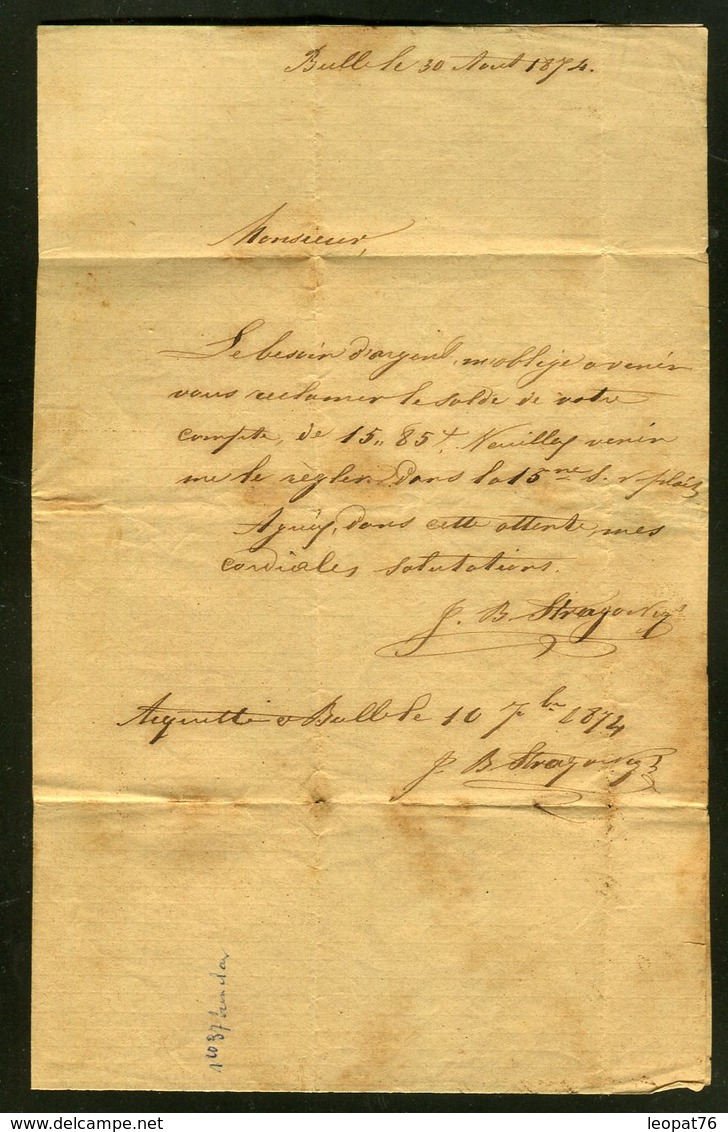 Bulle le 30 Aout 1874.
Monsieur,
Le besoin d'argent m'oblige a venir
vous reclamer le solde de votre
compte, de 15,, 85 ct. Veuillez venir
me le règler dans la 15ne S. v. plait
Agréez, dans cette attente, mes
cordiales salutations.
J. B.
Acquitté a Bulle le 10 7bre 1874
J. B.
leopat76